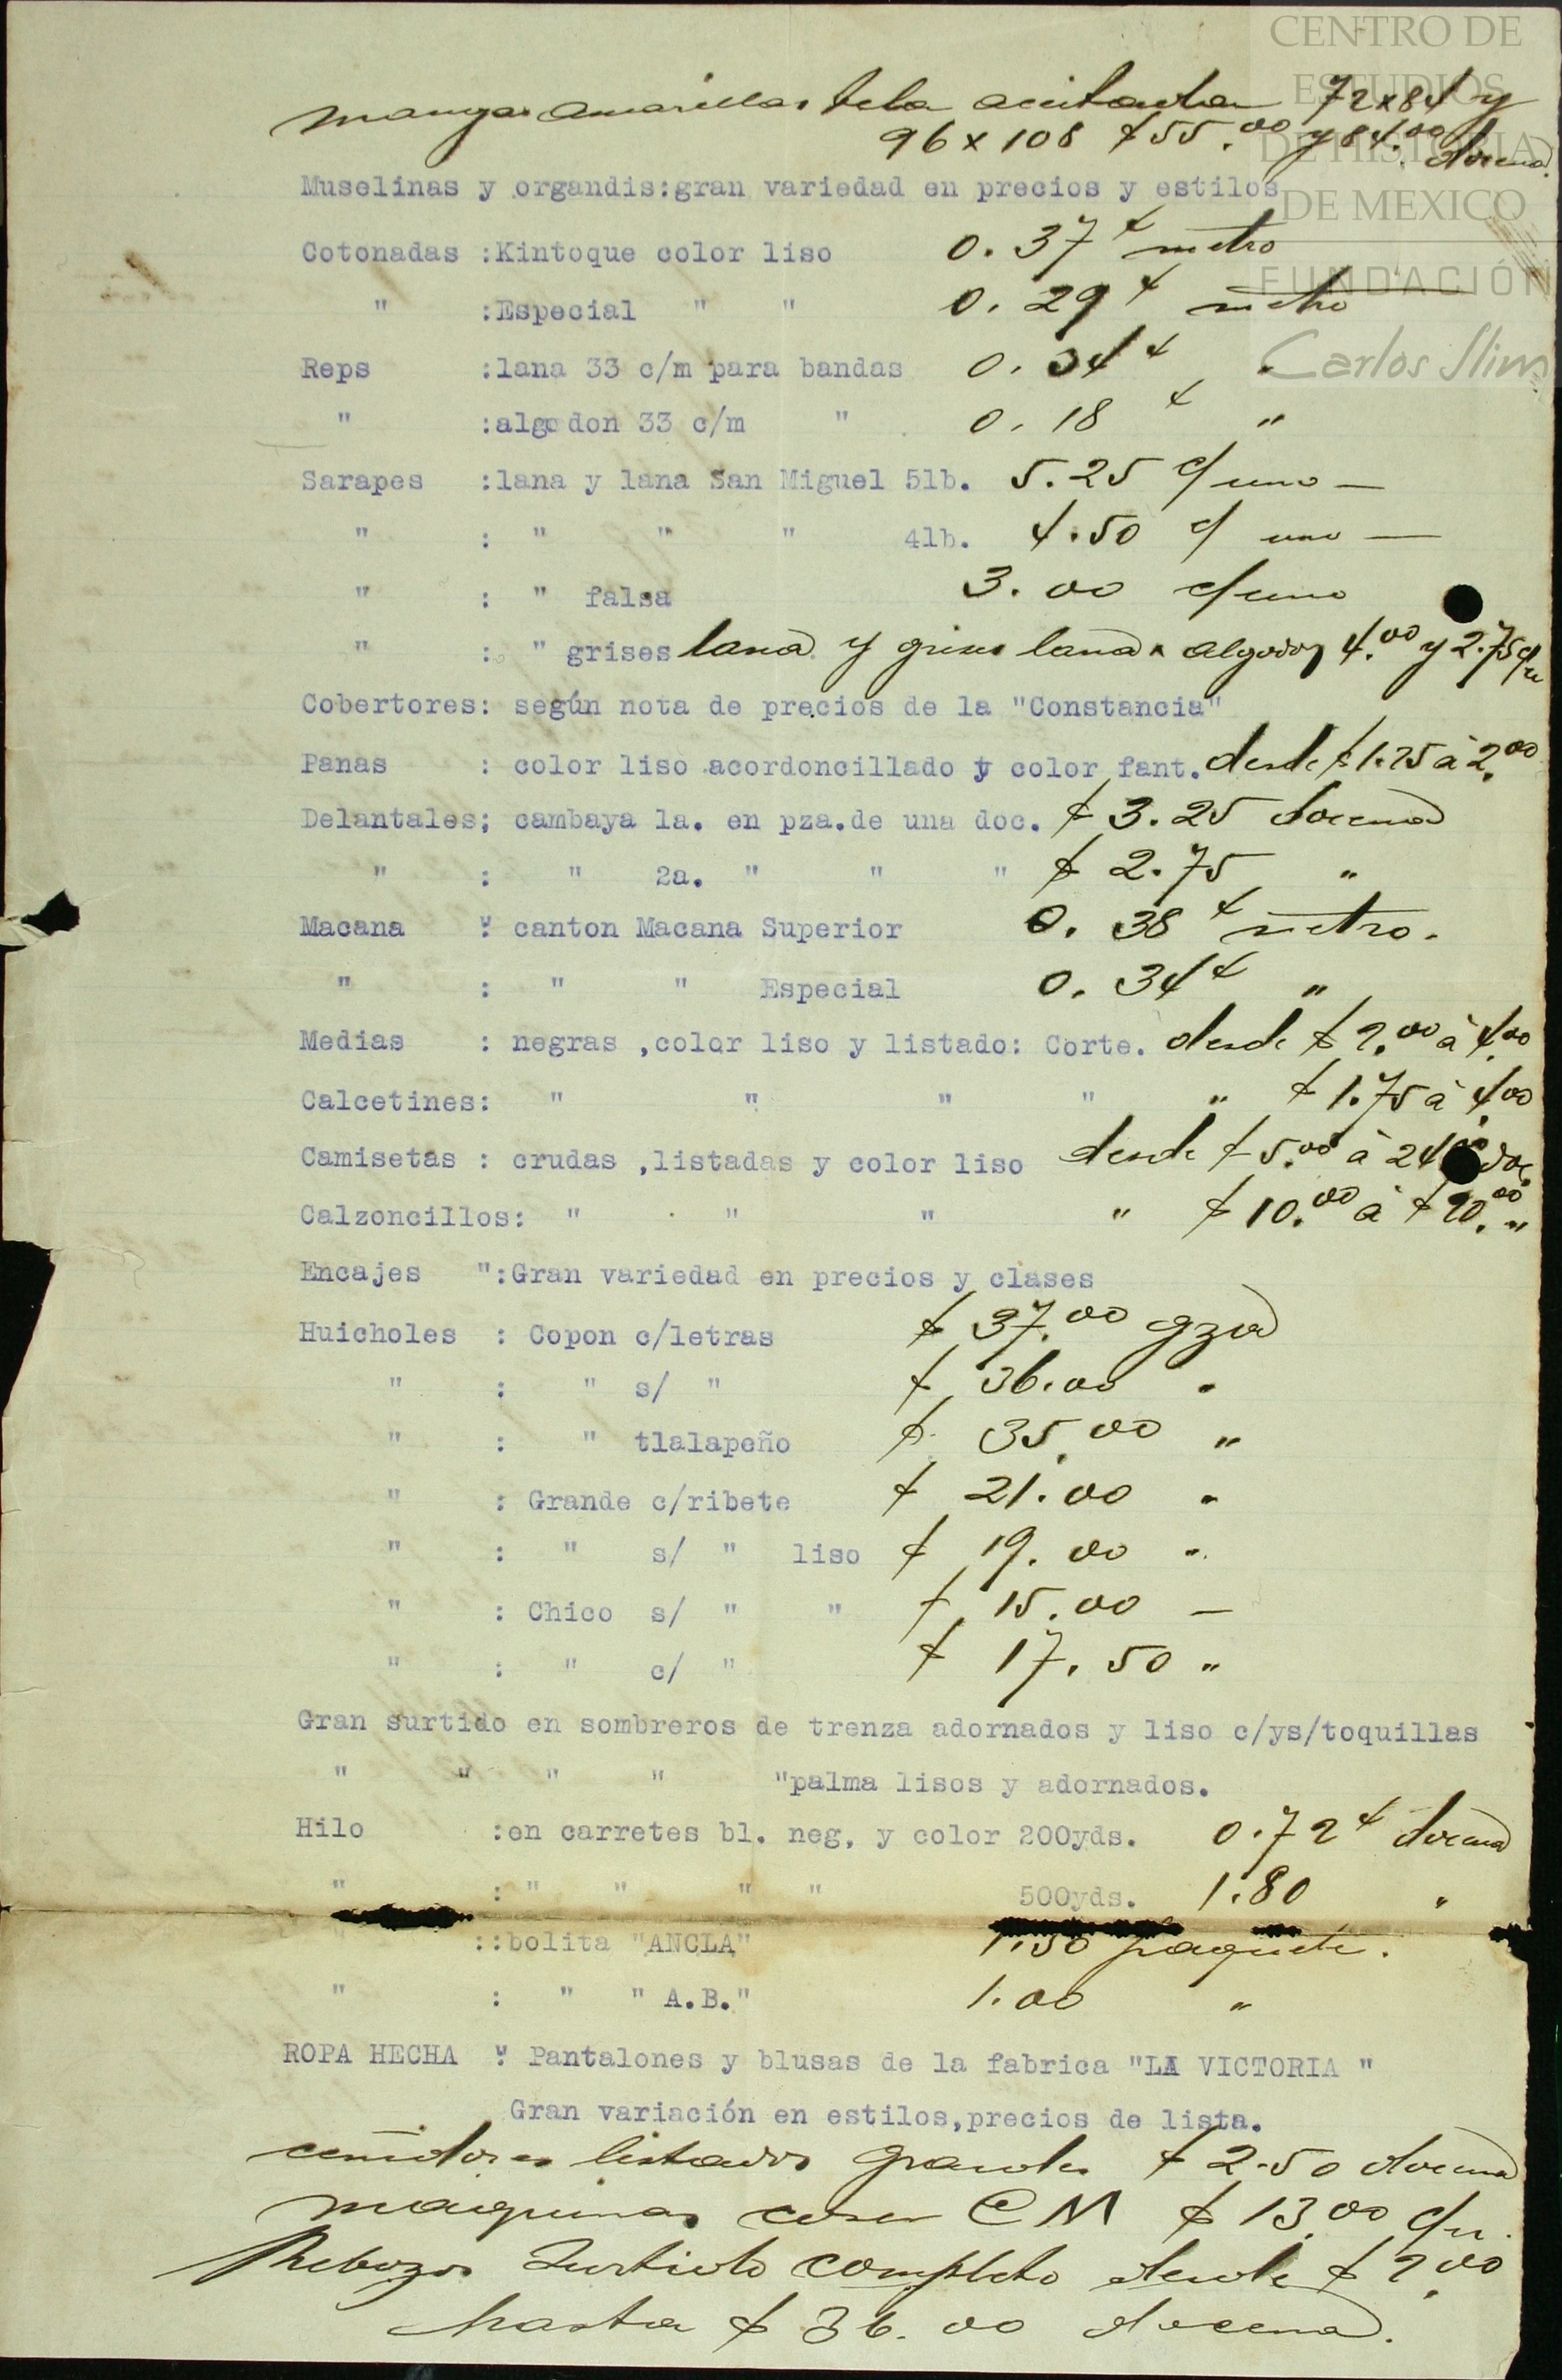 CENTRO DE
ESTUDIOS
DE HISTORIA
DE MEXICO
FUNDACIÓN
Carlos Slim
mangas amarillas tela aceitada 72x84 y
96 x 108 $55.00 y 84.00 docena.
Muselinas y organdis:gran variedad en precios y estilos
Cotonadas :Kintoque color liso 0.37 ¢ metro
" :Especial " " 0.29 ¢ metro
Reps :lana 33 c/m para bandas 0.34 ¢ "
" :algodon 33 c/m " 0.18 ¢ "
Sarapes :lana y lana San Miguel 5lb. 5.25 c/ uno —
" : " " " 4lb. 4.50 c/ uno —
" : " falsa 3.00 c/uno
" : " grises lana y grises lana algodon 4.00 y 2.75 c/u
Cobertores: según nota de precios de la "Constancia"
Panas : color liso acordoncillado y color fant. desde $1.25 à 2.00
Delantales; cambaya 1a. en pza.de una doc. $ 3.25 docena
" : " 2a. " " " $ 2.75 "
Macana : canton Macana Superior 0.38 ¢ metro.
" : " " Especial 0.34 ¢ "
Medias : negras ,color liso y listado: Corte. desde $ 2.00 à 4.00
Calcetines: " " " " " $ 1.75 à 4.00
Camisetas : crudas ,listadas y color liso desde $ 5.00 à 24 doc.
Calzoncillos: " " " " $ 10.00 à $ 20.00 "
Encajes ":Gran variedad en precios y clases
Huicholes : Copon c/letras $ 37.00 gza
" : " s/ " $ 36.00 "
" : " tlalapeño $ 35.00 "
" : Grande c/ribete $ 21.00 "
" : " s/ " liso $ 19.00 "
" : Chico s/ " " $ 15.00 —
" : " c/ " $ 17.50 "
Gran surtido en sombreros de trenza adornados y liso c/ys/toquillas
" " " " "palma lisos y adornados.
Hilo :en carretes bl. neg, y color 200yds. 0.72 ¢ docena
" : " " " " 500yds. 1.80 "
::bolita "ANCLA" 1.50 paquete.
" : " " A.B." 1.00 "
ROPA HECHA : Pantalones y blusas de la fabrica "LA VICTORIA "
Gran variación en estilos,precios de lista.
ceñidores listados grandes $ 2.50 docena
maquinas coser C M $ 13.00 c/u.
Rebozos Surtido completo desde $ 2.00
hasta $ 36.00 docena.